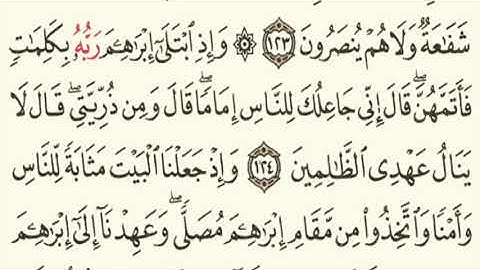 شَفَـٰعَةٌ وَلَا هُمْ يُنصَرُونَ ١٢٣ ۞ وَإِذِ ٱبْتَلَىٰٓ إِبْرَٰهِـۧمَ رَبُّهُۥ بِكَلِمَـٰتٍ
فَأَتَمَّهُنَّ ۖ قَالَ إِنِّى جَاعِلُكَ لِلنَّاسِ إِمَامًا ۖ قَالَ وَمِن ذُرِّيَّتِى ۖ قَالَ لَا
يَنَالُ عَهْدِى ٱلظَّـٰلِمِينَ ١٢٤ وَإِذْ جَعَلْنَا ٱلْبَيْتَ مَثَابَةً لِّلنَّاسِ
وَأَمْنًا وَٱتَّخِذُوا۟ مِن مَّقَامِ إِبْرَٰهِـۧمَ مُصَلًّى ۖ وَعَهِدْنَآ إِلَىٰٓ إِبْرَٰهِـۧمَ